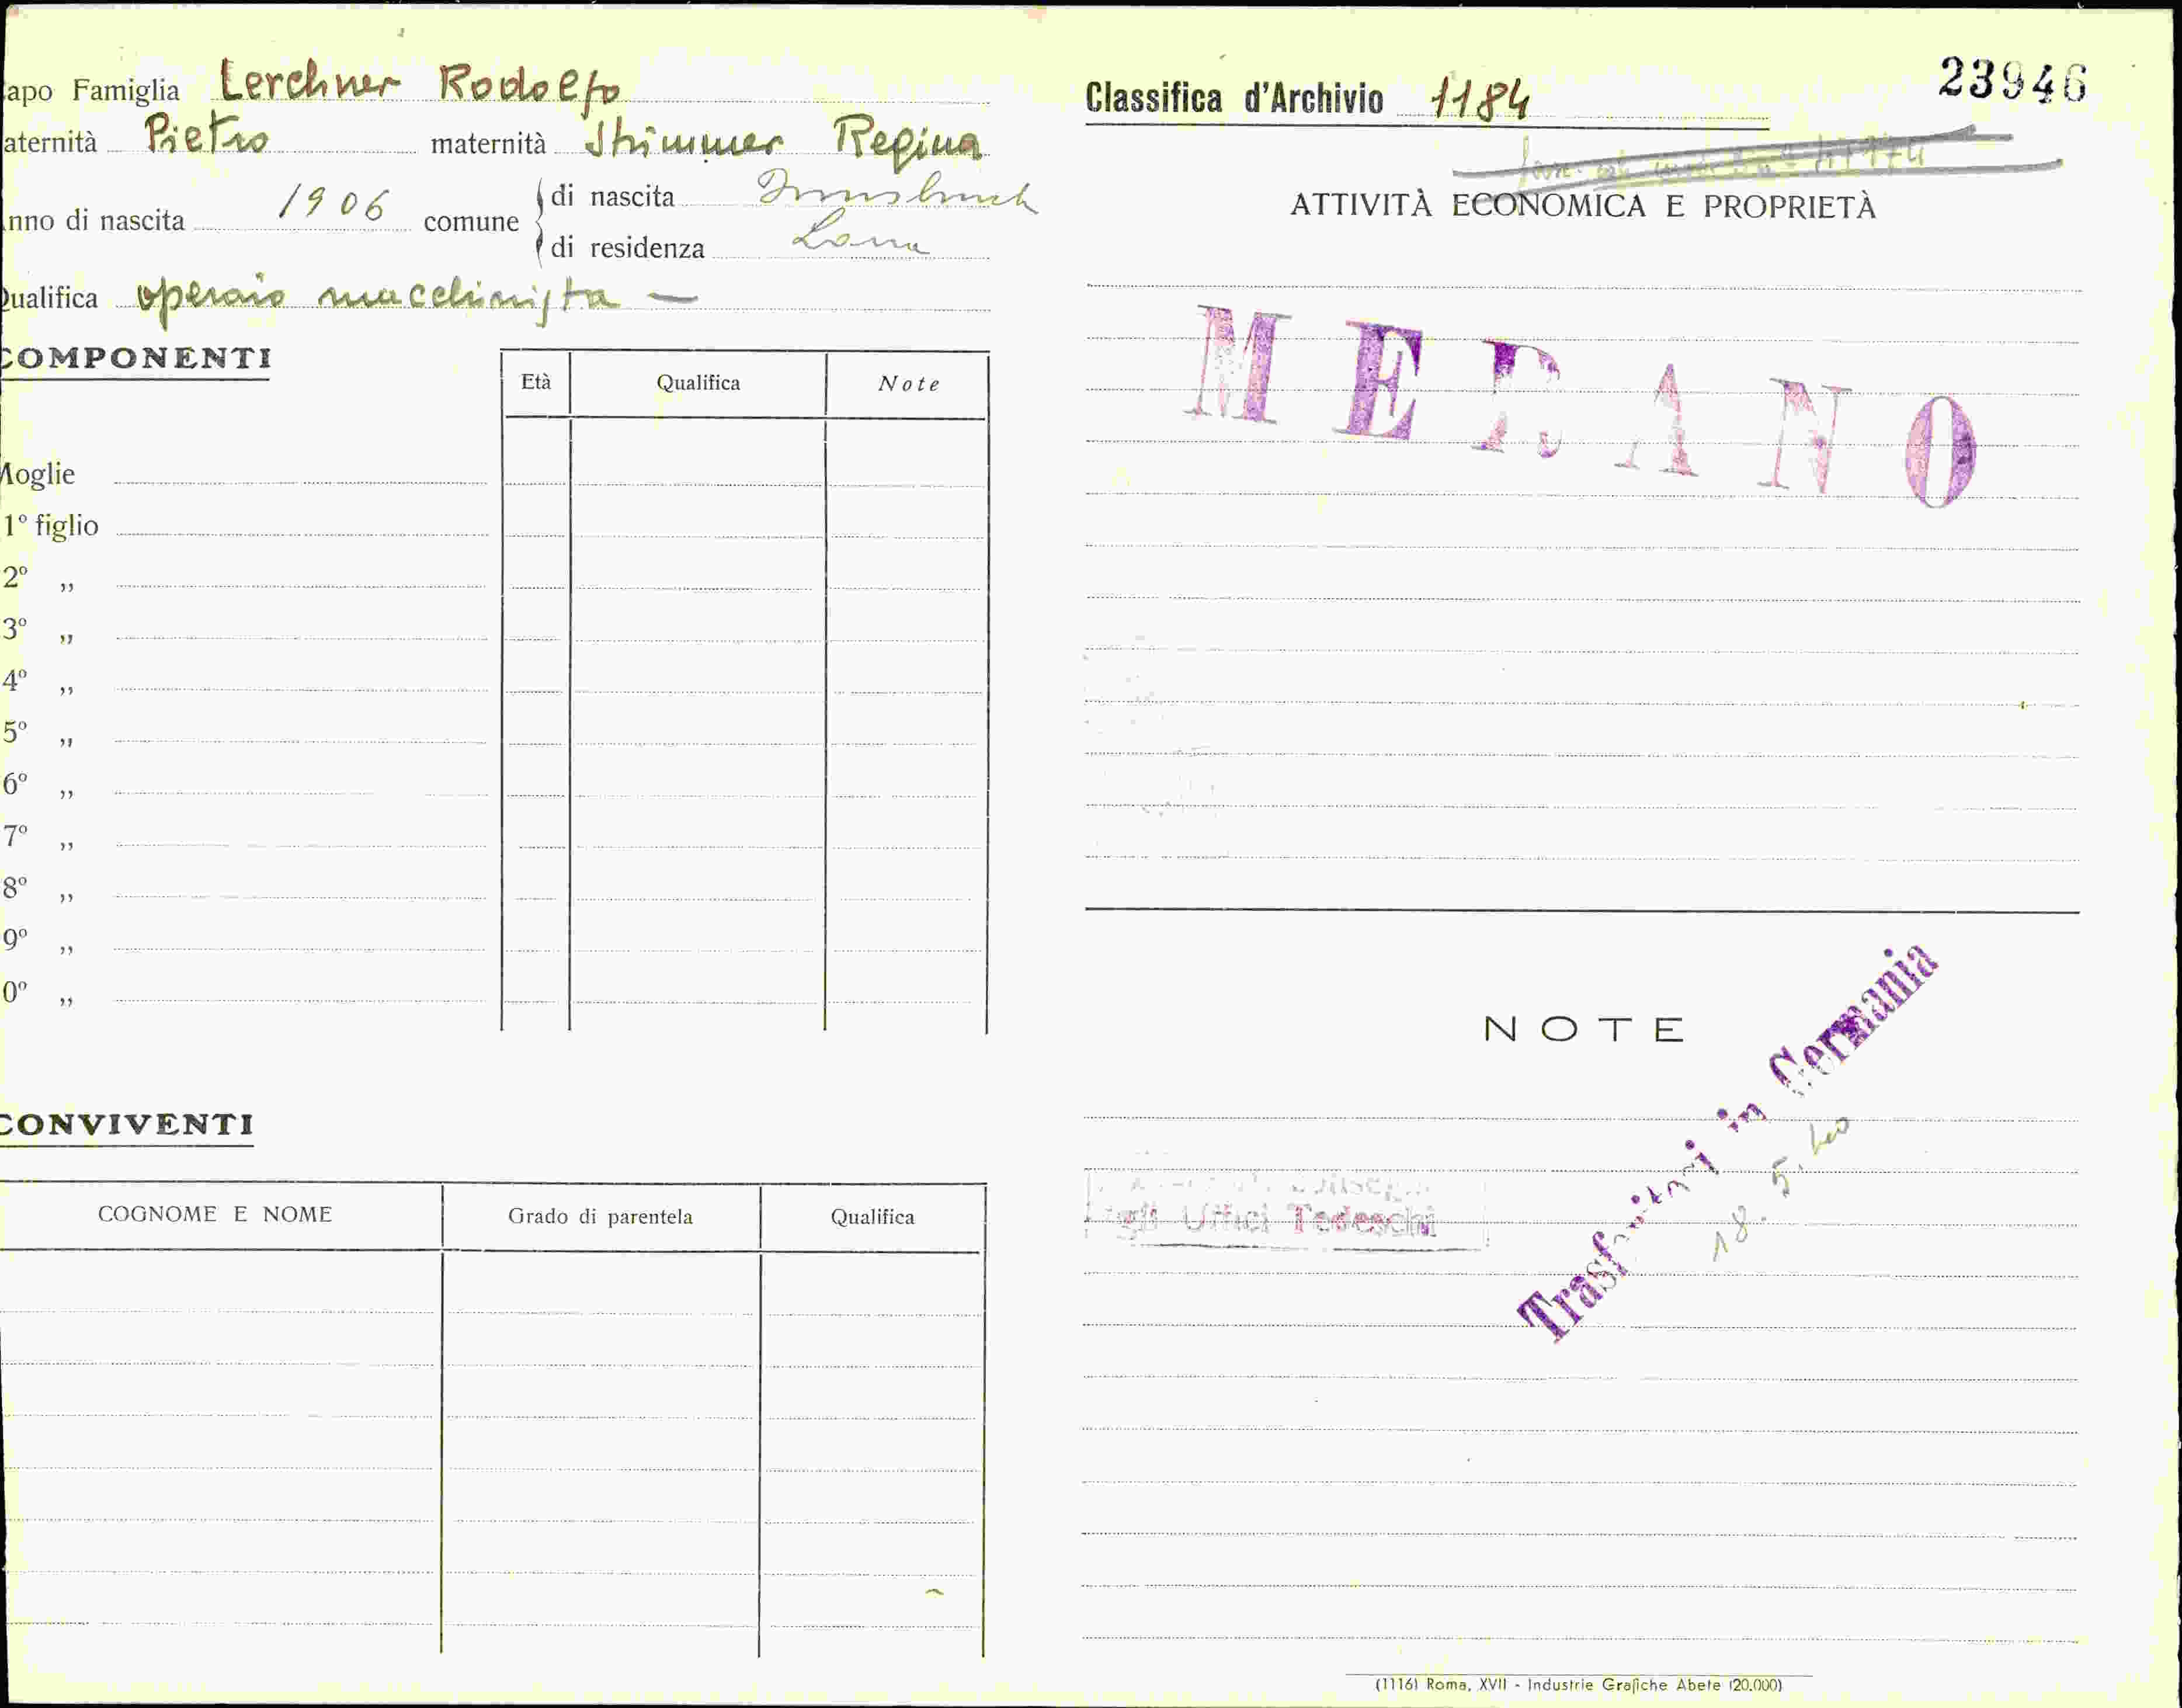 apo Famiglia Lerchner Rodolfo
aternità Pietro maternità Strimmer Regina
nno di nascita 1906 comune di nascita Innsbruck
di residenza Lana
Qualifica operaio macchinista —
COMPONENTI
Età Qualifica Note
Moglie
1º figlio
2º „
3º „
4º „
5º „
6º „
7º „
8º „
9º „
0º „
CONVIVENTI
COGNOME E NOME Grado di parentela Qualifica
23946
Classifica d'Archivio 1184
ATTIVITÀ ECONOMICA E PROPRIETÀ
MERANO
NOTE
Trasferitosi in Germania
18. 5. 40
agli Uffici Tedeschi
(1116) Roma, XVII - Industrie Grafiche Abete (20.000)